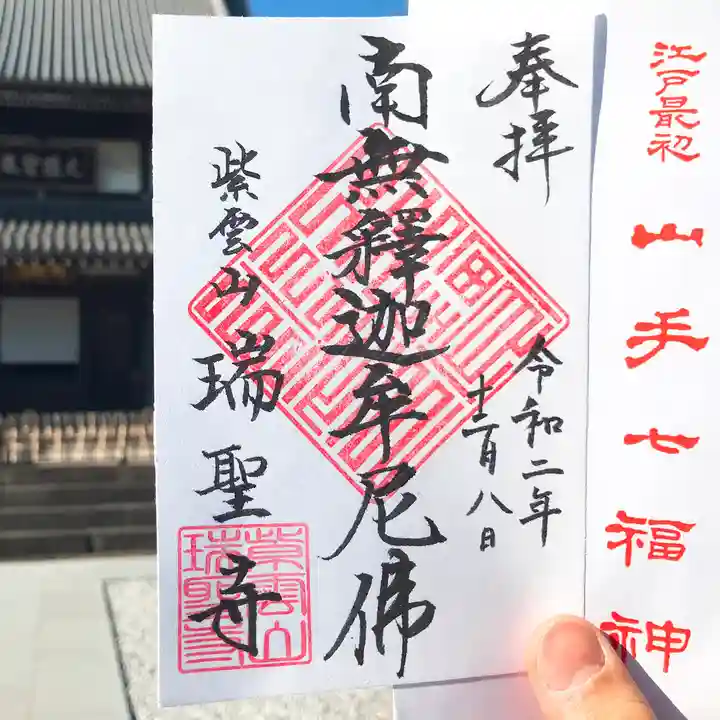 江戸最初
山手七福神
奉拝
令和二年
十二月八日
南無釋迦牟尼佛
紫雲山
瑞聖寺
紫雲山
瑞聖寺